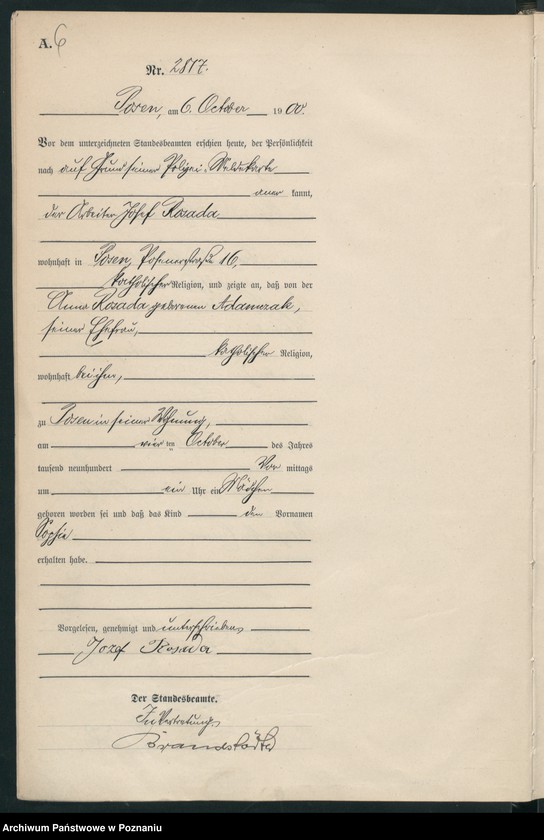 A. 6
Nr. 2817.
Posen, am 6. October 1900.
Vor dem unterzeichneten Standesbeamten erschien heute, der Persönlichkeit
nach auf Grund seiner Polizei-Meldekarte
aner kannt,
der Arbeiter Josef Rozada
wohnhaft in Posen, 16,
katholischer Religion, und zeigte an, daß von der
Anna Rozada geborenen Adamczak,
seiner Ehefrau,
katholischer Religion,
wohnhaft bei ihm,
zu Posen in seiner Wohnung,
am vier ten October des Jahres
tausend neunhundert Vor mittags
um ein Uhr ein Mädchen
geboren worden sei und daß das Kind den Vornamen
Sophie
erhalten habe.
Vorgelesen, genehmigt und unterschrieben
Jozef Rosada
Der Standesbeamte.
In Vertretung
Archiwum Państwowe w Poznaniu